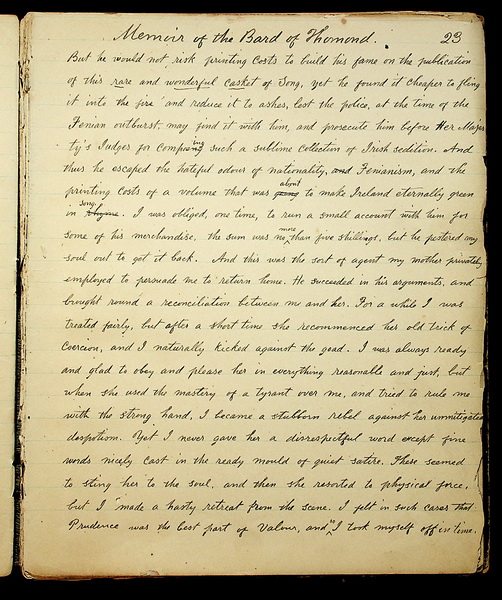 Memoir of the Bard of Thomond. 23
But he would not risk printing costs to build his fame on the publication
of this rare and wonderful casket of Song, yet he found it cheaper to fling
it into the fire and reduce it to ashes, lest the police, at the time of the
Fenian outburst, may find it with him, and prosecute him before Her Majes
ty's Judges for Compiling such a sublime Collection of Irish sedition. And
thus he escaped the hateful odour of nationality, and Fenianism, and the
about
printing costs of a volume that was going to make Ireland eternally green
song
in rhyme. I was obliged, one time, to run a small account with him for
more
some of his merchandise, the sum was no than five shillings, but he pestered my
soul out to get it back. And this was the sort of agent my mother privately
employed to persuade me to return home. He succeeded in his arguments, and
brought round a reconciliation between me and her. For a while I was
treated fairly, but after a short time she recommenced her old trick of
Coercion, and I naturally kicked against the goad. I was always ready
and glad to obey and please her in everything reasonable and just, but
when she used the mastery of a tyrant over me, and tried to rule me
with the strong hand, I became a stubborn rebel against her unmitigated
despotism. Yet I never gave her a disrespectful word except fine
words nicely cast in the ready mould of quiet satire. These seemed
to sting her to the soul, and then she resorted to physical force,
but I made a hasty retreat from the scene. I felt in such cases that
Prudence was the best part of Valour, and I took myself off in time.